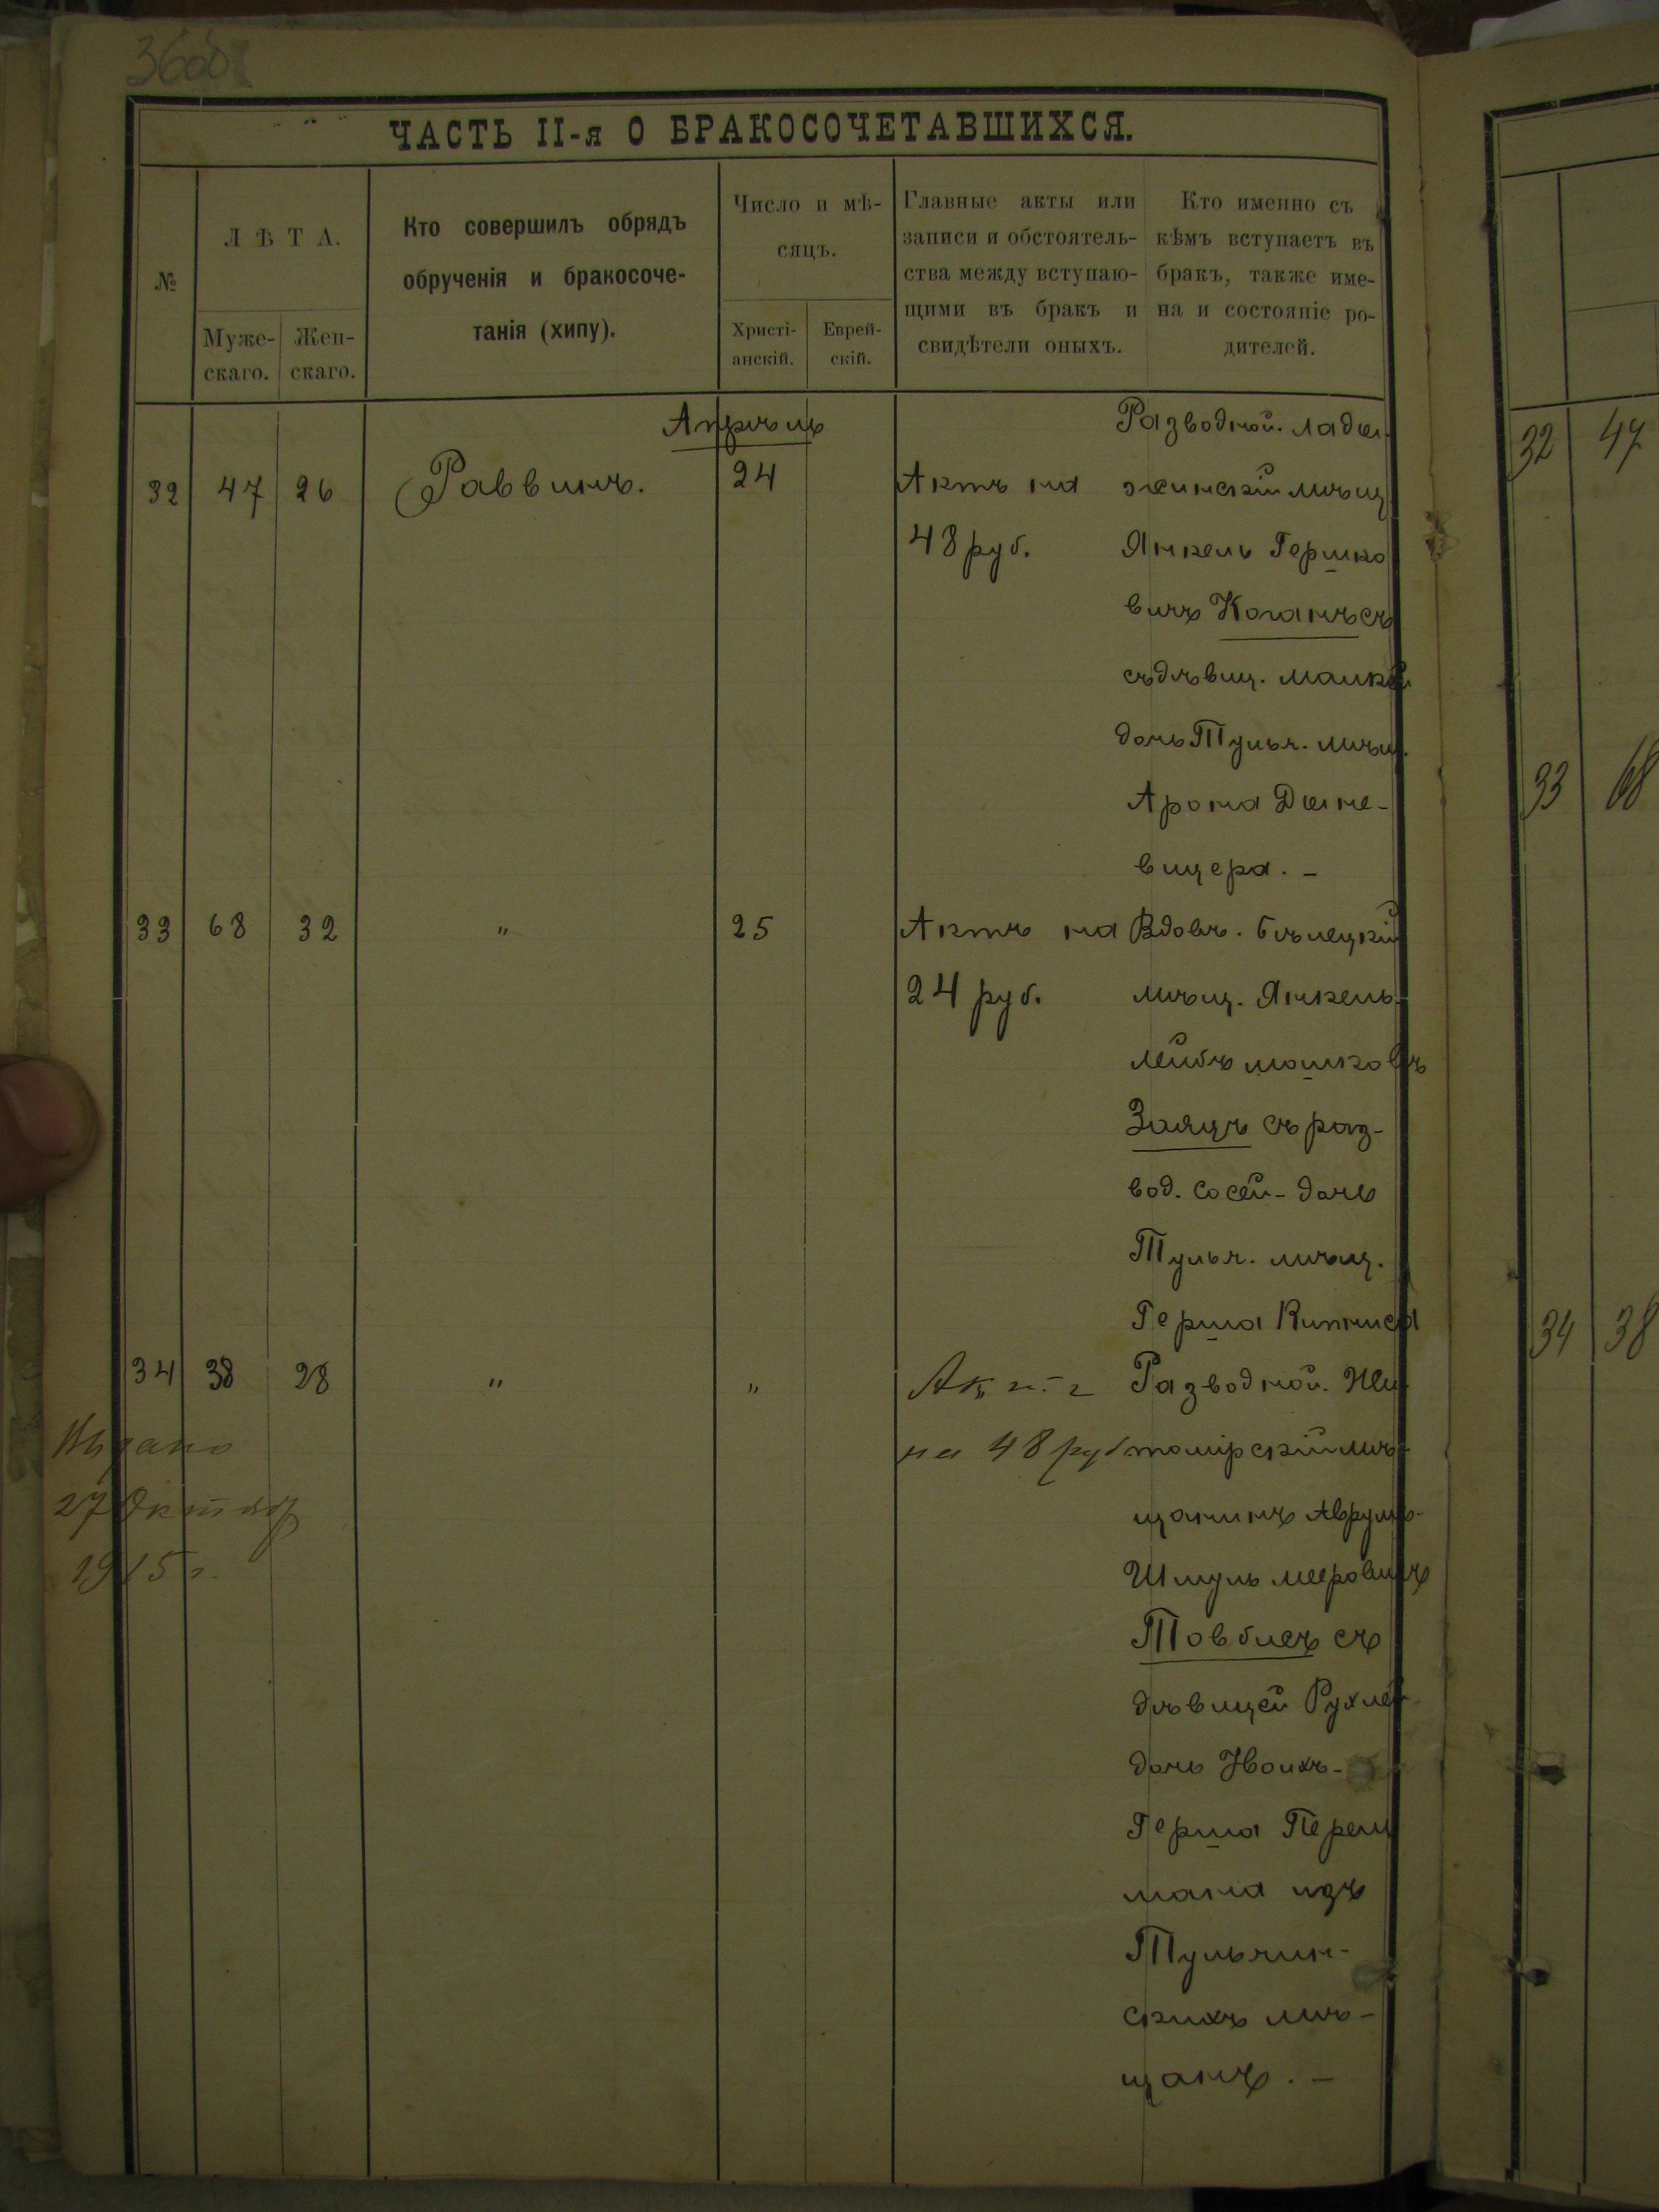 36об
ЧАСТЬ II-я О БРАКОСОЧЕТАВШИХСЯ.
№
ЛѢТА.
Муже-
скаго.
Жен-
скаго.
Кто совершилъ обрядъ
обрученія и бракосоче-
танія (хипу).
Число и мѣ-
сяцъ.
Христі-
анскій.
Еврей-
скій.
Главные акты или
записи и обстоятель-
ства между вступаю-
щими въ бракъ и
свидѣтели оныхъ.
Кто именно съ
кѣмъ вступаетъ въ
бракъ, также име-
на и состояніе ро-
дителей.
Апрѣль
32 47 26 Раввинъ. 24
Актъ на
48 руб.
Разводной. Лады
жинскій мѣщ
Янкель Гершко
вичъ Коганъ съ
съ дѣвиц. Малкой
дочь Тульч. мѣщ.
Арона
вицера. -
33 68 32 " 25
Актъ на
24 руб.
Вдовъ. Бѣлецкій
мѣщ. Янкель-
Лейбъ Мошковъ
Заяцъ съ раз-
вод. Сосей - дочь
Тульч. мѣщ.
Герша
34 38 28 " "
Актъ
на 48 руб
Разводной. Жи
томірскій мѣ-
щанинъ Аврумъ-
Шмуль Мееровичъ
Товбисъ съ
дѣвицей Рухлей
дочь
Герша Перель
мана изъ
Тульчин-
скихъ мѣ-
щанъ. -
Выдано
27 Октябр
1915 г.
32 47
33 68
34 38